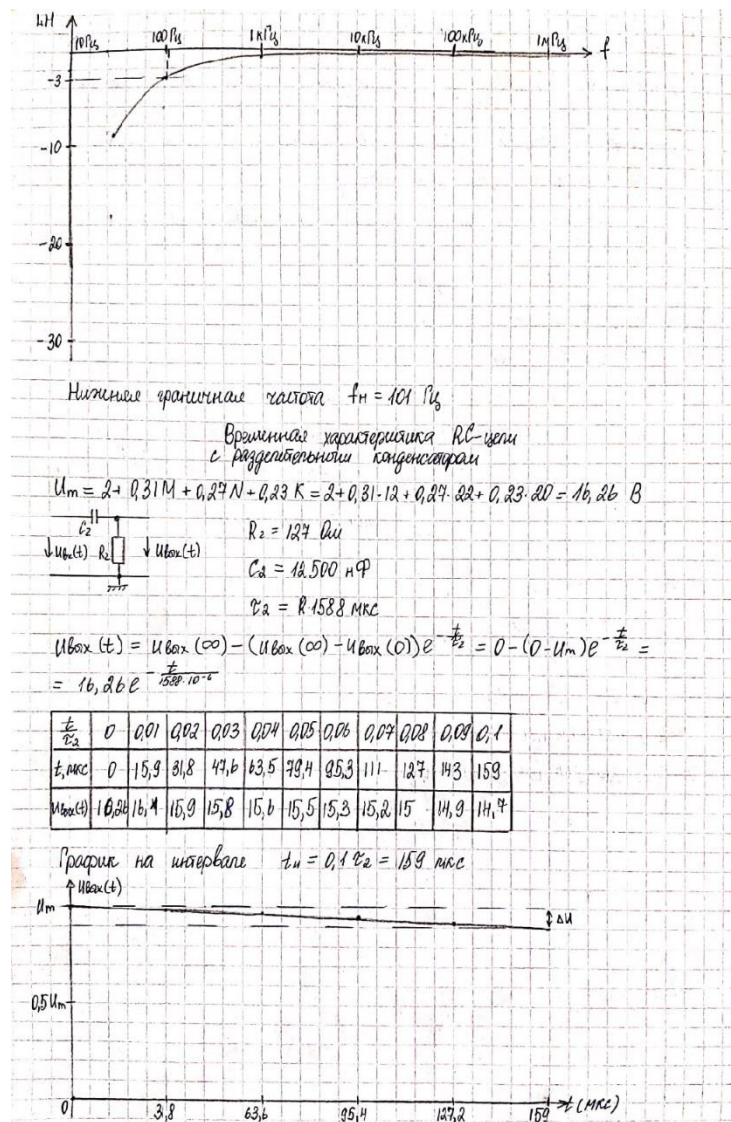 LH
10Гц 100Гц 1кГц 10кГц 100кГц 1МГц f
-3
-10
-20
-30
Нижняя граничная частота fн = 101 Гц
Временная характеристика RC-цепи
с разделительным конденсатором
Um = 2 + 0,31M + 0,27N + 0,23K = 2 + 0,31·12 + 0,27·22 + 0,23·20 = 16,26 В
C2
↓Uвх(t) R2 ↓Uвых(t)
R2 = 127 Ом
C2 = 12500 нФ
τ2 = 1588 мкс
Uвых(t) = Uвых(∞) − (Uвых(∞) − Uвых(0))e^(−t/τ2) = 0 − (0 − Um)e^(−t/τ2) =
= 16,26e^(−t/1588·10^-6)
t/τ2 0 0,01 0,02 0,03 0,04 0,05 0,06 0,07 0,08 0,09 0,1
t, мкс 0 15,9 31,8 47,6 63,5 79,4 95,3 111 127 143 159
Uвых(t) 16,26 16,1 15,9 15,8 15,6 15,5 15,3 15,2 15 14,9 14,7
График на интервале tи = 0,1τ2 = 159 мкс
Uвых(t)
Um
ΔU
0,5Um
0 3,8 63,6 95,4 127,2 159 t(мкс)